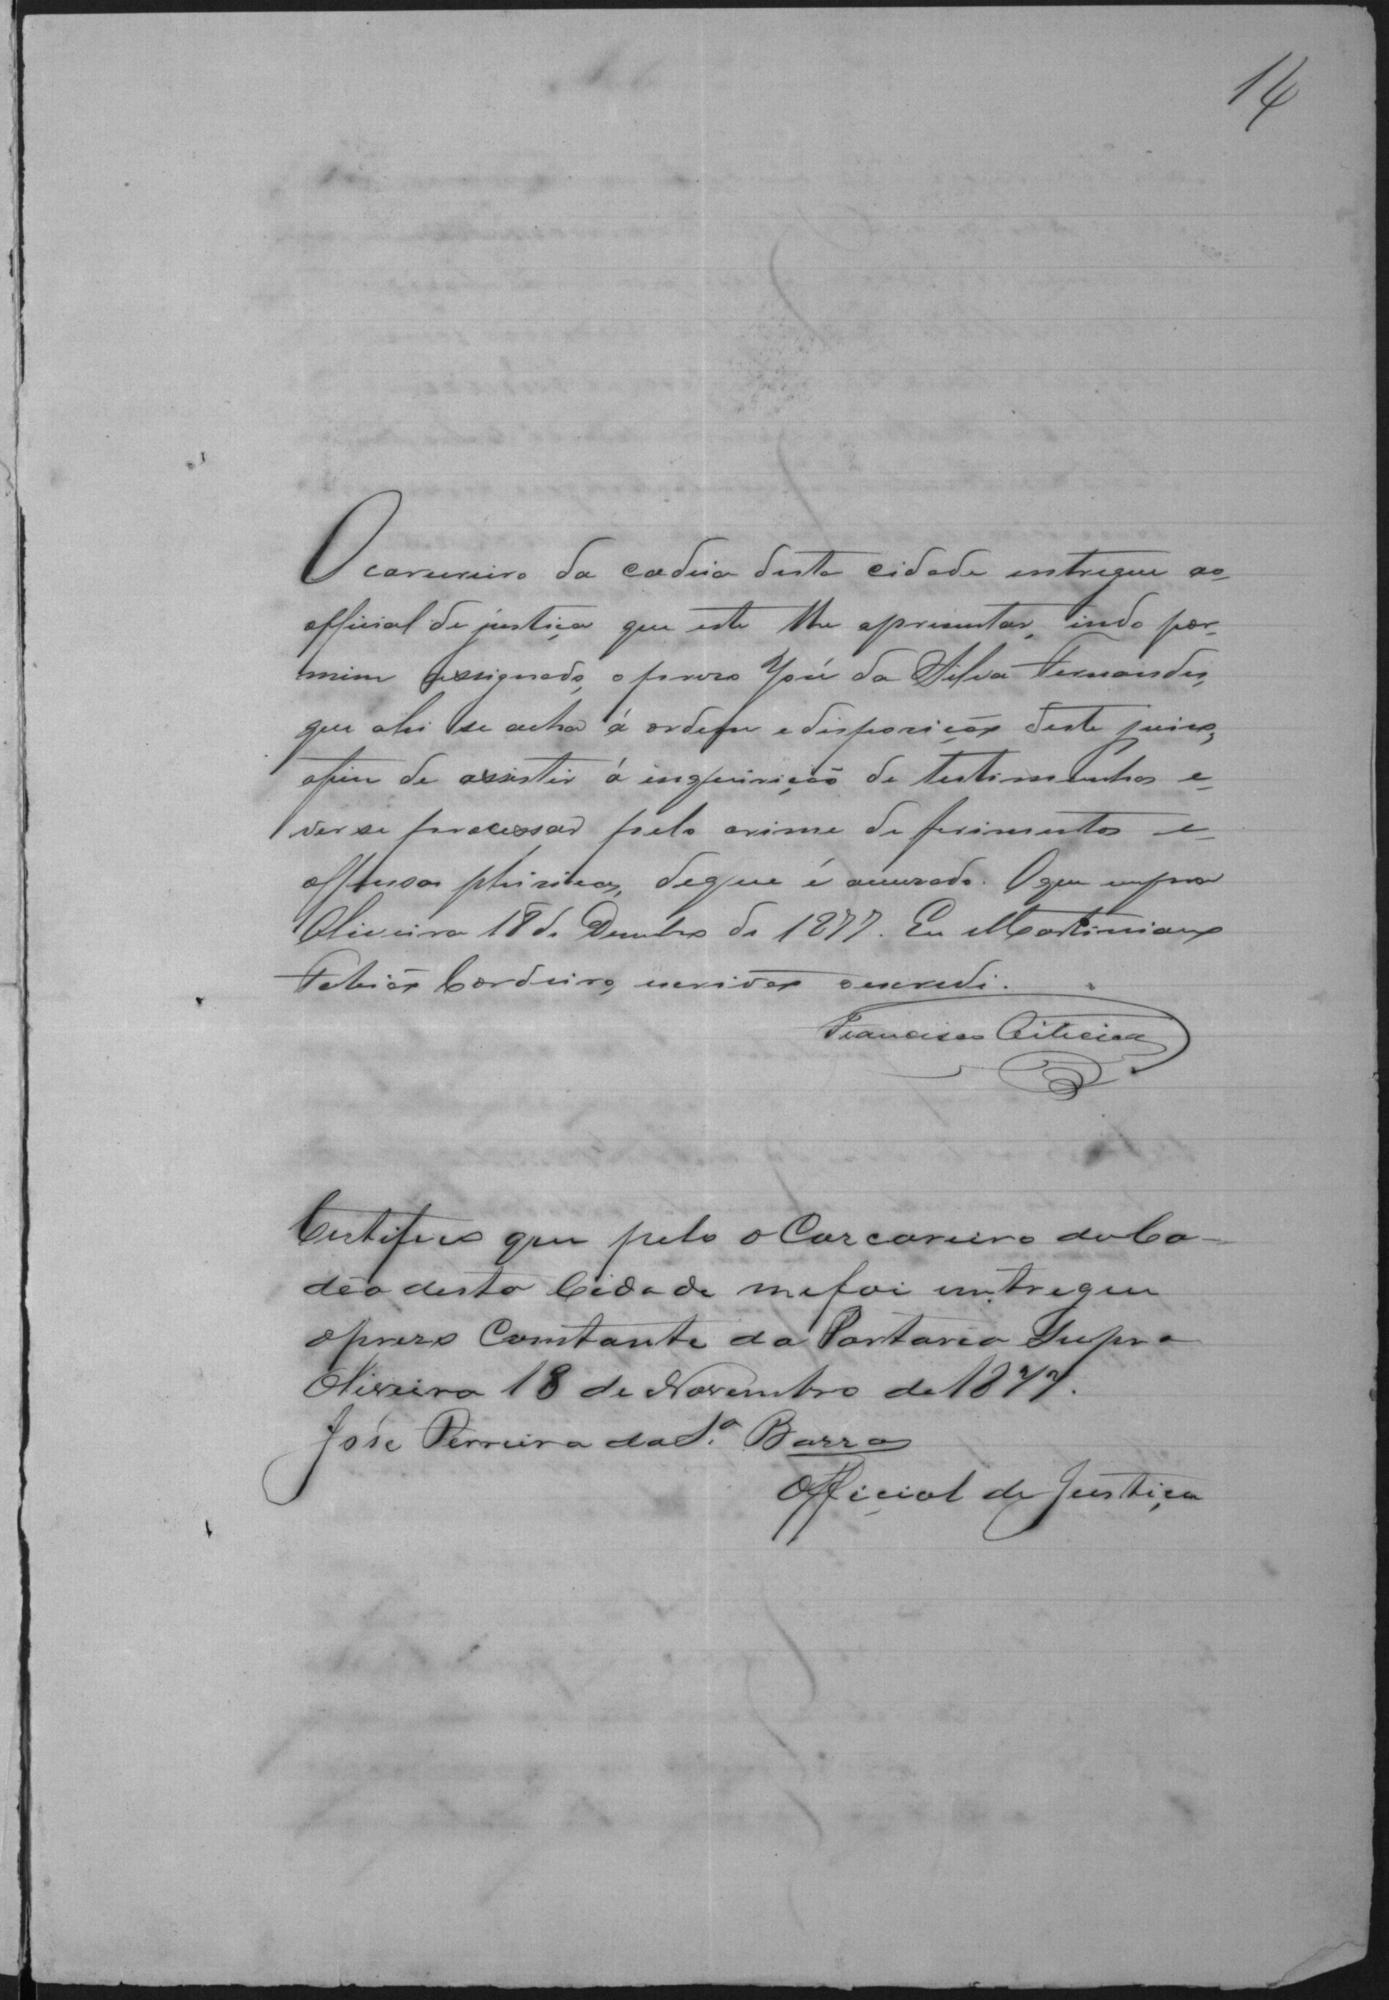 14
O carcereiro da cadeia desta cidade entregue ao
official de justiça que este lhe apresentar, indo por
mim assignado, o preso José da Silva Fernandes,
que ahi se acha á ordem e disposição deste juizo,
afim de assistir á inquirição de testimunhas e
ver se processar pelo crime de ferimentos e
offensas phisicas, de que é accusado. O que cumpra
Oliveira 18 de Dezembro de 1877. Eu Martiniano
Fabião Cordeiro, escrivão o escrevi.
Francisco
Certifico que pelo o Carcareiro da Ca-
dea desta Cidade me foi entregue
o prezo Constante da Portaria Supra
Oliveira 18 de Novembro de 1877.
José Ferreira da S.ª Barra
Official de Justiça